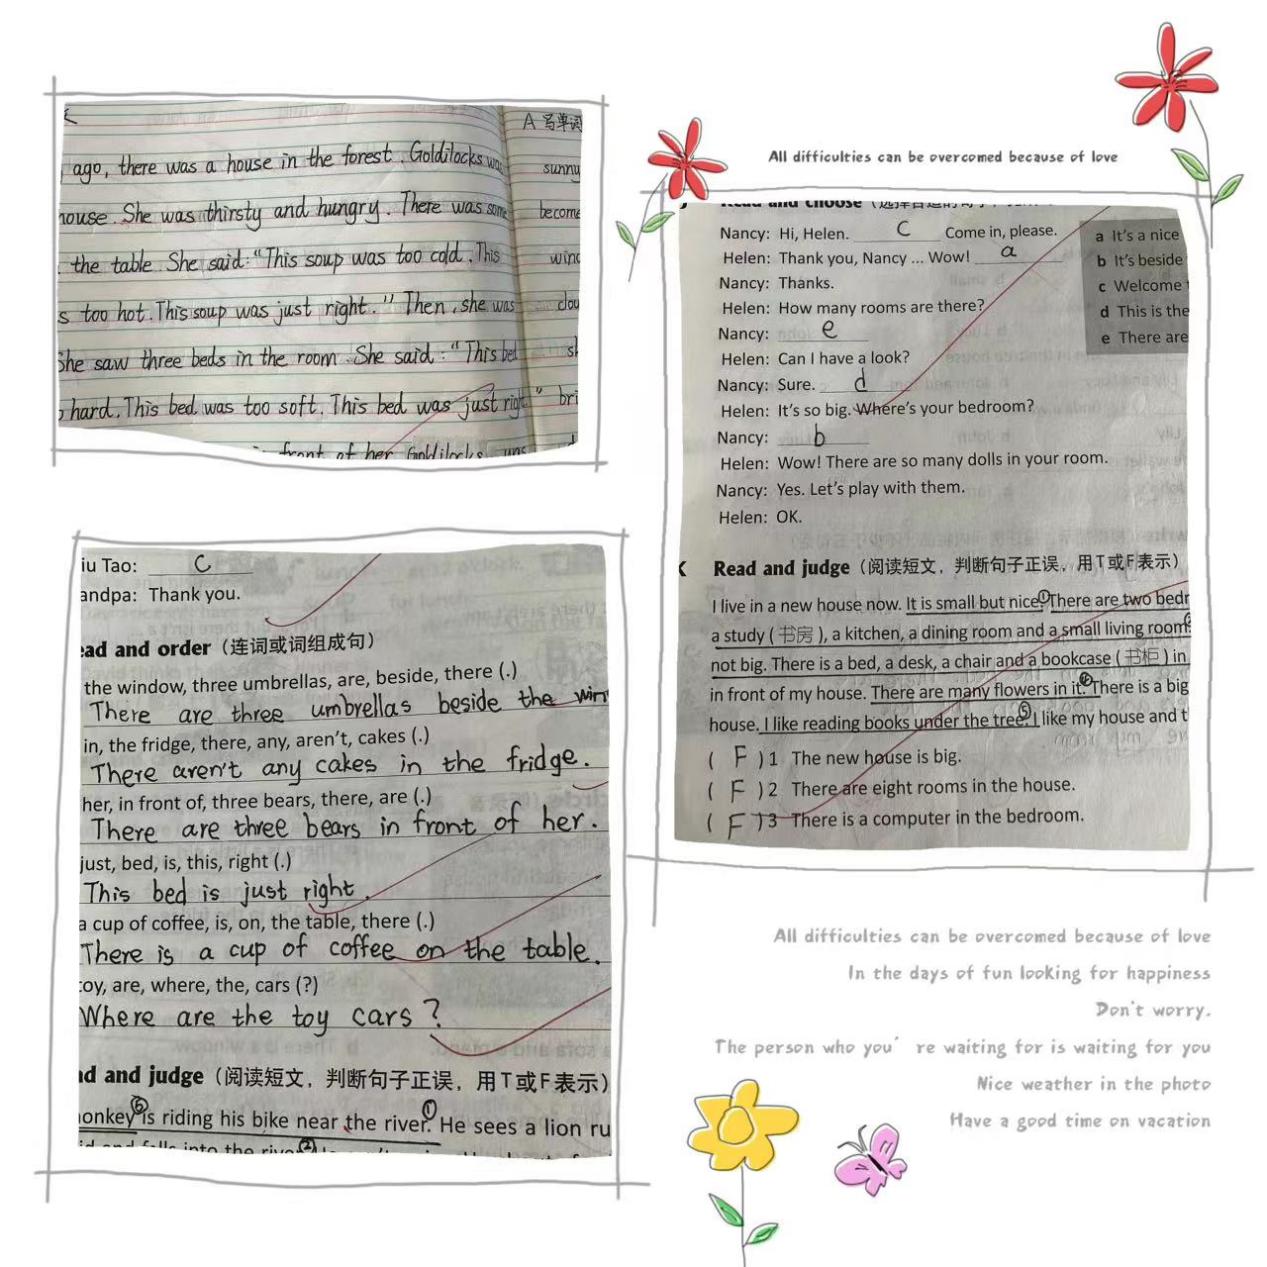 A 写单词
ago, there was a house in the forest. Goldilocks was
sunny
house. She was thirsty and hungry. There was some
become
the table. She said: "This soup was too cold. This
s too hot. This soup was just right." Then, she was
She saw three beds in the room. She said: "This bed
hard. This bed was too soft. This bed was just right"
bri
front of her Goldilocks was
All difficulties can be overcomed because of love
Read and choose
Nancy: Hi, Helen. C Come in, please.
Helen: Thank you, Nancy ... Wow! a
Nancy: Thanks.
Helen: How many rooms are there?
Nancy: e
Helen: Can I have a look?
Nancy: Sure. d
Helen: It's so big. Where's your bedroom?
Nancy: b
Helen: Wow! There are so many dolls in your room.
Nancy: Yes. Let's play with them.
Helen: OK.
a It's a nice
b It's beside
c Welcome
d This is the
e There are
K Read and judge (阅读短文，判断句子正误，用T或F表示)
I live in a new house now. It is small but nice.① There are two bedr
a study (书房), a kitchen, a dining room and a small living room.
not big. There is a bed, a desk, a chair and a bookcase (书柜) in
in front of my house. There are many flowers in it. There is a big
house. I like reading books under the tree.⑤ I like my house and t
( F ) 1 The new house is big.
( F ) 2 There are eight rooms in the house.
( F ) 3 There is a computer in the bedroom.
iu Tao: C
andpa: Thank you.
ad and order (连词或词组成句)
the window, three umbrellas, are, beside, there (.)
There are three umbrellas beside the win
in, the fridge, there, any, aren't, cakes (.)
There aren't any cakes in the fridge.
her, in front of, three bears, there, are (.)
There are three bears in front of her.
just, bed, is, this, right (.)
This bed is just right.
a cup of coffee, is, on, the table, there (.)
There is a cup of coffee on the table.
toy, are, where, the, cars (?)
Where are the toy cars?
ad and judge (阅读短文，判断句子正误，用T或F表示)
onkey is riding his bike near the river.① He sees a lion ru
falls into the river②
All difficulties can be overcomed because of love
In the days of fun looking for happiness
Don't worry.
The person who you're waiting for is waiting for you
Nice weather in the photo
Have a good time on vacation